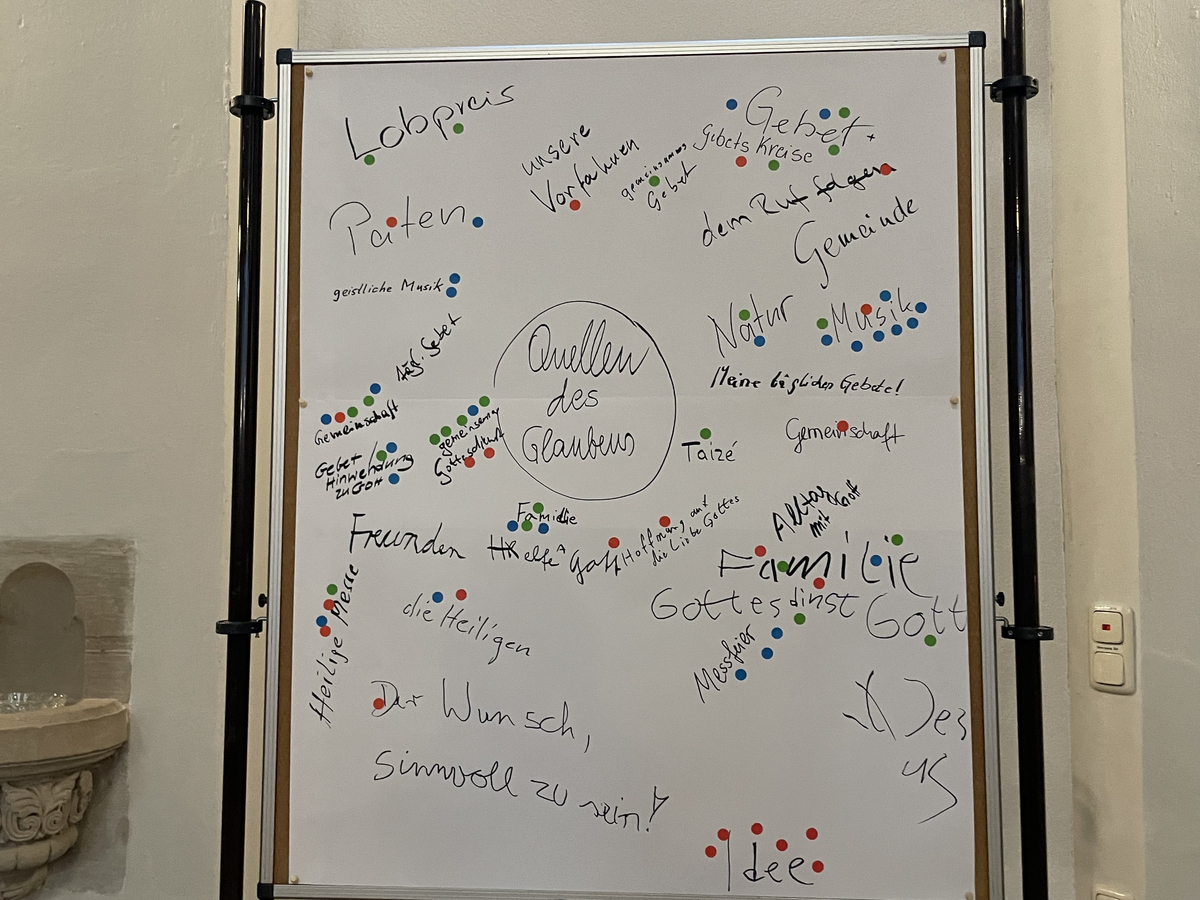 Lobpreis
unsere
Vorfahren
gemeinsames
Gebet
Gebet
Gebets Kreise
dem Ruf folgen
Gemeinde
Paten
geistliche Musik
Natur
Musik
Quellen
des
Glaubens
tägl. Gebet
Meine täglichen Gebete!
Gemeinschaft
gemeinsamer
Gottesdienst
Taizé
Gemeinschaft
Gebet
Hinwendung
zu Gott
Familie
Freunden
Gott
Hoffnung auf
die Liebe Gottes
Alltag
mit Gott
Familie
Gottesdinst
Gott
Heilige Messe
die Heiligen
Messfeier
Der Wunsch,
sinnvoll zu sein!
Idee